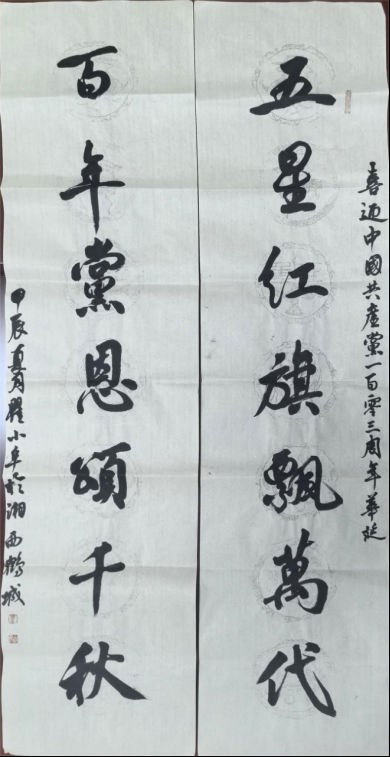 喜迎中國共產黨一百零三周年華誕
五星红旗飄萬代
百年黨恩頌千秋
甲辰夏月瞿小阜於湘西鶴城